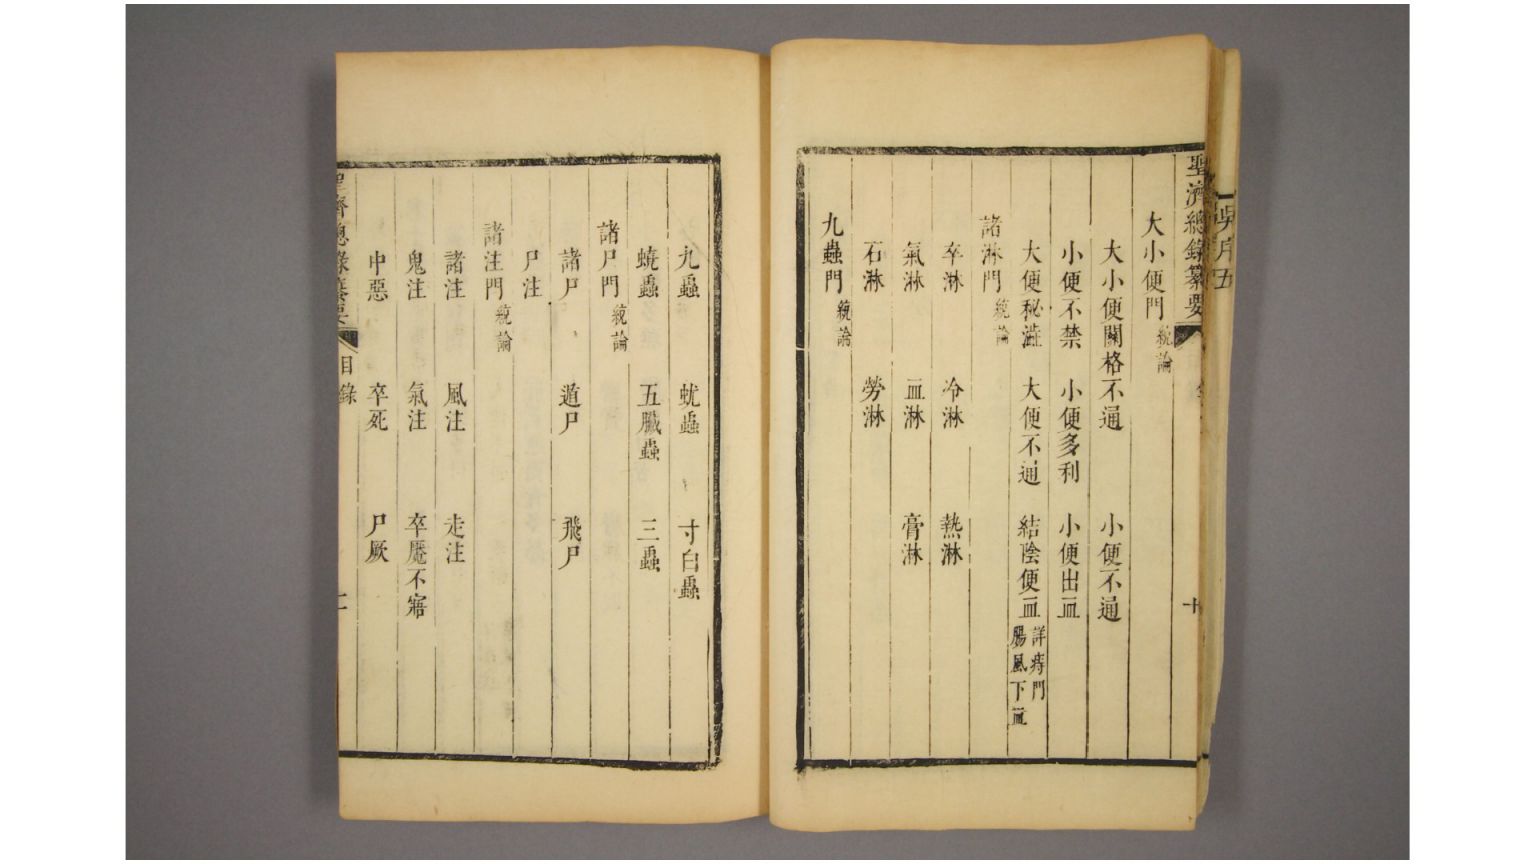 吳序五
聖濟總錄纂要 十
大小便門 統論
大小便關格不通 小便不通
小便不禁 小便多利 小便出血
大便秘澁 大便不通 結陰便血 詳痔門腸風下血
諸淋門 統論
卒淋 冷淋 熱淋
氣淋 血淋 膏淋
石淋 勞淋
九蟲門 統論
九蟲 蚘蟲 寸白蟲
蟯蟲 五臟蟲 三蟲
諸尸門 統論
諸尸 遁尸 飛尸
尸注
諸注門 統論
諸注 風注 走注
鬼注 氣注 卒魘不寤
中惡 卒死 尸厥
聖濟總錄纂要 目錄